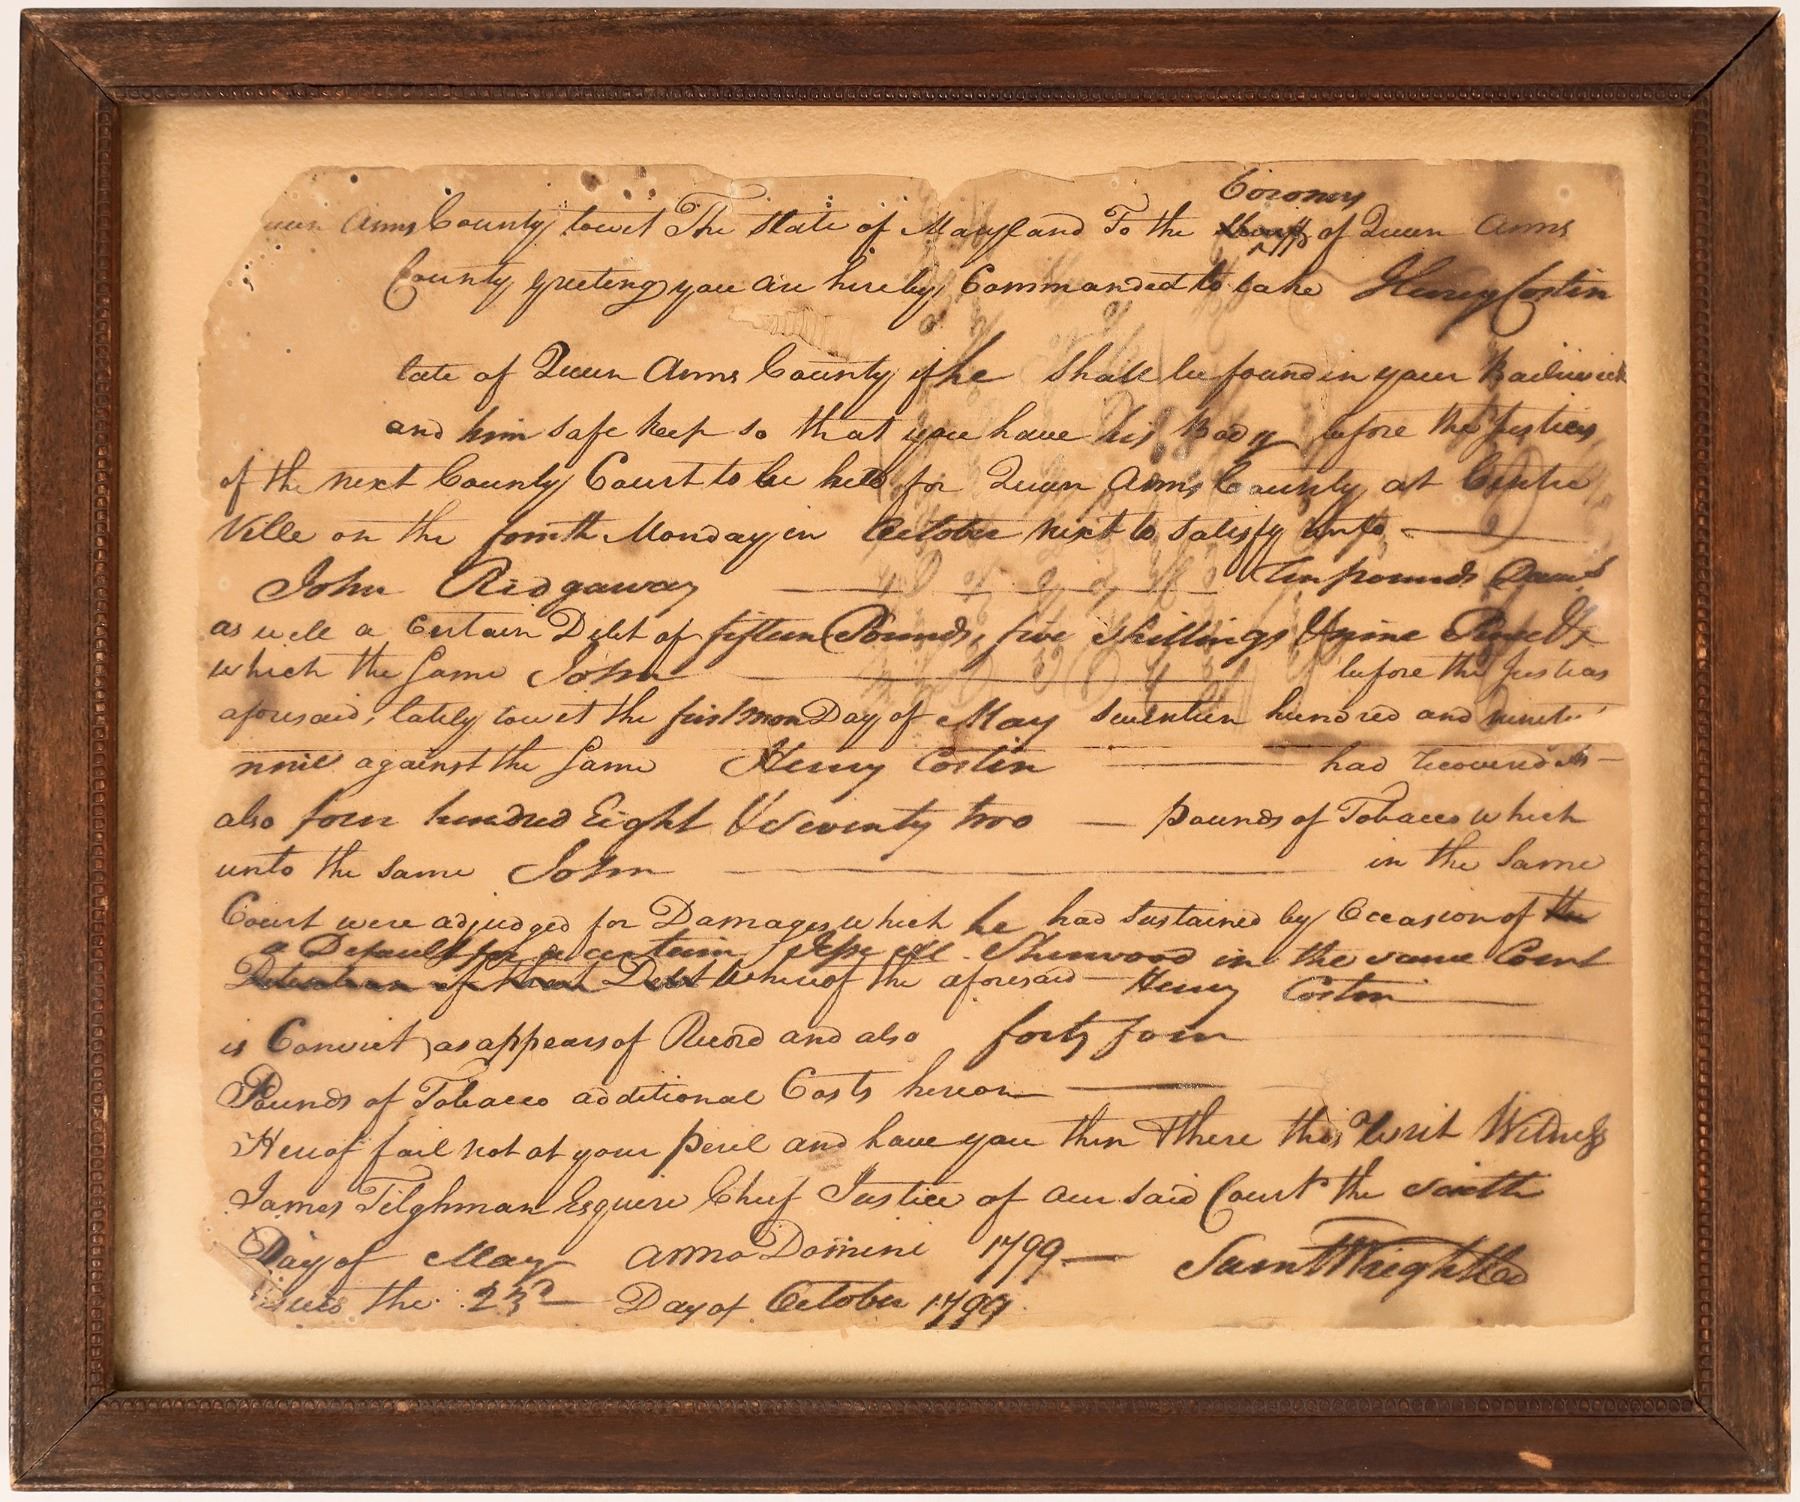 Coroner
Queen Anns County towit The State of Maryland To the Sheriff of Queen Anns
County greeting you are hereby Commanded to take Henry Costin
late of Queen Anns County if he Shall be found in your Bailiwick
and him safe keep so that you have his Body before the Justices
of the next County Court to be held for Queen Anns County at Centre
Ville on the fourth Monday in October next to satisfy unto
John Ridgaway Ten pounds
as well a Certain Debt of fifteen Pounds, five shillings & nine Pence
which the same John before the Justices
aforesaid, lately towit the first mon Day of May Seventeen hundred and ninety
nine against the Same Henry Costin had recovered As
also four hundred Eight & Seventy two pounds of Tobacco which
unto the same John in the Same
Court were adjudged for Damages which he had sustained by Occasion of the
a Default for a certain Sherwood in the same Court
Detention of that Debt whereof the aforesaid Henry Costin
is Convict as appears of Record and also forty four
Pounds of Tobacco additional Costs hereon
Hereof fail not at your peril and have you then & there this Writ Witness
James Tilghman Esquire Chief Justice of our said Court the
Day of May Anno Domini 1799
Sam Wright
the 23d Day of October 1799